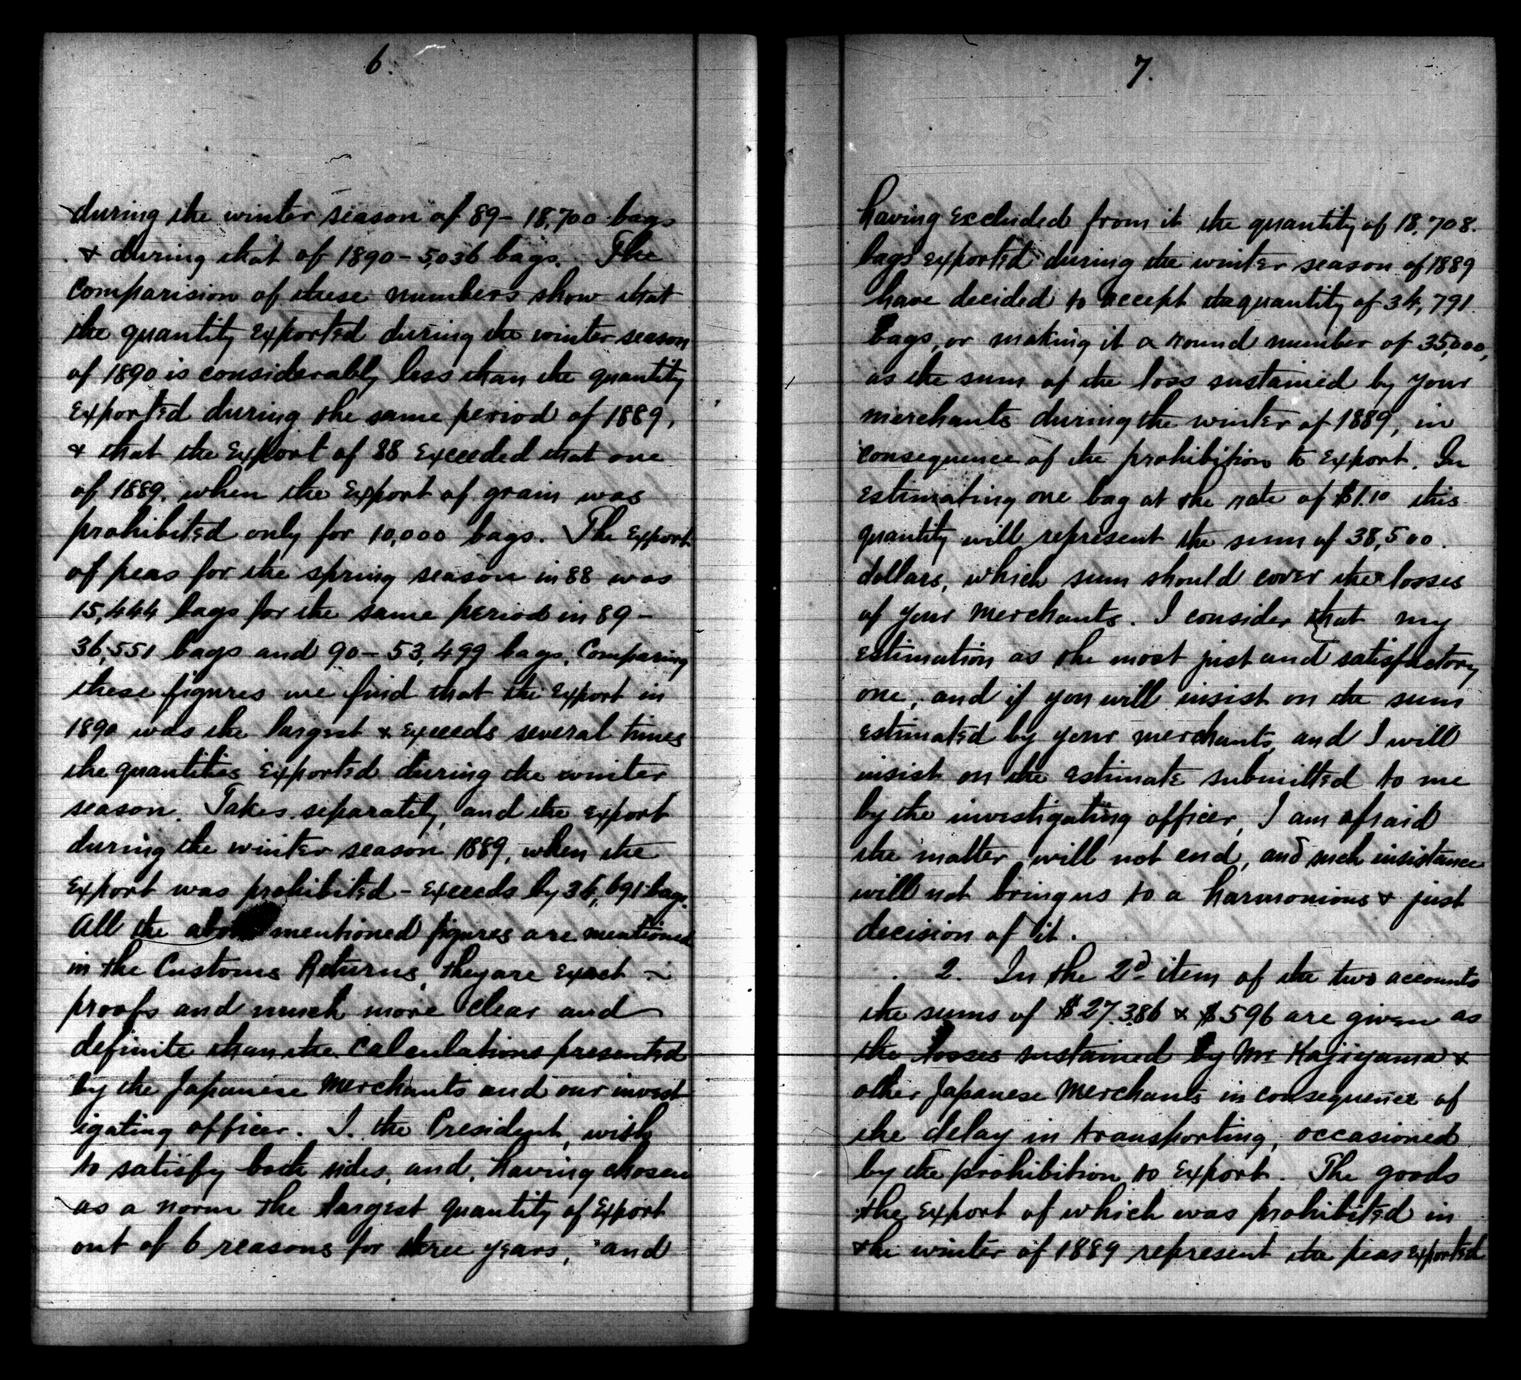 6.
during the winter season of 89 – 18,700 bags
& during that of 1890 – 5,036 bags. The
Comparision of these numbers show that
the quantity exported during the winter season
of 1890 is considerably less than the quantity
exported during the same period of 1889,
& that the export of 88 exceeded that one
of 1889, when the export of grain was
prohibited only for 10,000 bags. The export
of peas for the spring season in 88 was
15,444 bags for the same period in 89 –
36,551 bags and 90 – 53,499 bags. Comparing
these figures we find that the export in
1890 was the largest & exceeds several times
the quantities exported during the winter
season. Takes separately, and the export
during the winter season 1889, when the
export was prohibited – exceeds by 34,691 bags.
All the above mentioned figures are mentioned
in the Customs Returns, they are exact –
proofs and much more clear and
definite than the calculations presented
by the Japanese Merchants and our invest
igating officer. I. the President, wish
to satisfy both sides, and, having chosen
as a norm the largest quantity of export
out of 6 reasons for three years, and
7.
having excluded from it the quantity of 18,708.
bags exported during the winter season of 1889
have decided to accept the quantity of 34,791
bags, or making it a round number of 35,000,
as the sum of the loss sustained by your
merchants during the winter of 1889, in
consequence of the prohibition to export. In
estimating one bag at the rate of $1.10 this
quantity will represent the sum of 38,500.
dollars, which sum should cover the losses
of your Merchants. I consider that my
estimation as the most just and satisfactory
one, and if you will insist on the sum
estimated by your merchants, and I will
insist on the estimate submitted to me
by the investigating officer, I am afraid
the matter will not end, and such insistance
will not bring us to a harmonious & just
decision of it.
2. In the 2d item of the two accounts
the sums of $27,386 & $596 are given as
the losses sustained by Mr Kajiyama &
other Japanese Merchants in consequence of
the delay in transporting, occasioned
by the prohibition to export. The goods
the export of which was prohibited in
the winter of 1889 represent the peas exported